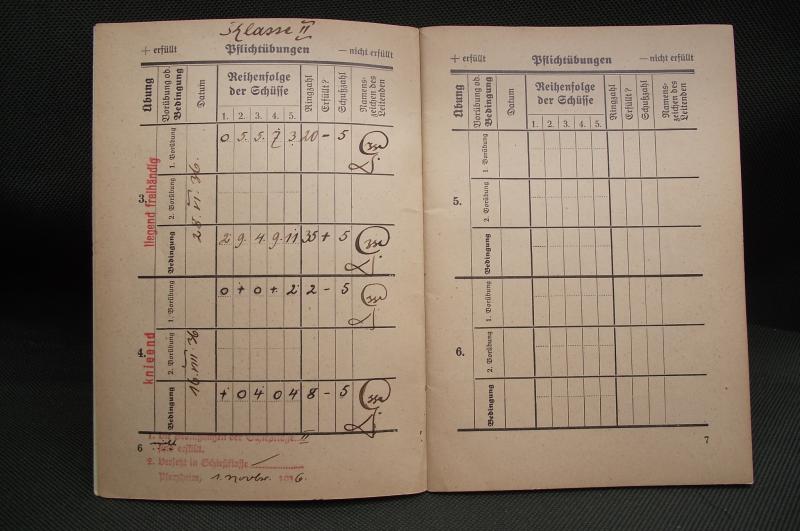 Klasse II
+ erfüllt Pflichtübungen — nicht erfüllt
Übung
Vorübung od. Bedingung
Datum
Reihenfolge der Schüsse
1. 2. 3. 4. 5.
Ringzahl
Erfüllt?
Schußzahl
Namenszeichen des Leitenden
3.
liegend freihändig
1. Vorübung
0 5. 5. 7 3 20 – 5
2. Vorübung
28. VI. 36.
Bedingung
2 9. 4. 9. 11 35 + 5
4.
kniend
1. Vorübung
0 + 0 + 2 2 – 5
2. Vorübung
16. VIII 36
Bedingung
+ 0 4 0 4 8 – 5
1. Die Bedingungen der Schießklasse II
nicht erfüllt.
2. Versetzt in Schießklasse
Pforzheim, 1. Novbr. 1936.
6
+ erfüllt Pflichtübungen — nicht erfüllt
Übung
Vorübung od. Bedingung
Datum
Reihenfolge der Schüsse
1. 2. 3. 4. 5.
Ringzahl
Erfüllt?
Schußzahl
Namenszeichen des Leitenden
5.
1. Vorübung
2. Vorübung
Bedingung
6.
1. Vorübung
2. Vorübung
Bedingung
7